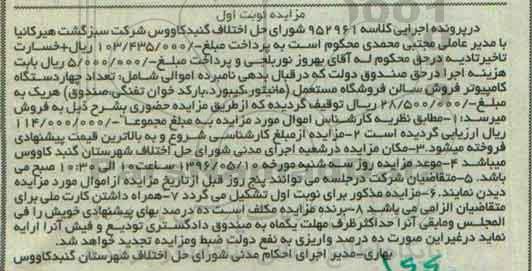 مزایده نوبت اول
درپرونده اجرایی کلاسه ۹۵۲۹۶۱ شورای حل اختلاف گنبدکاووس شرکت سبزگشت هیرکانیا
با مدیر عاملی مجتبی محمدی محکوم است به پرداخت مبلغ-/۱۰۳/۴۳۵/۰۰۰ ریال+خسارت
تاخیرتادیه درحق محکوم له آقای بهروز نوربلجی و پرداخت مبلغ-/۵/۰۰۰/۰۰۰ ریال بابت
هزینه اجرا درحق صندوق دولت که درقبال بدهی نامبرده اموالی شامل: تعداد چهاردستگاه
کامپیوتر فروش سالن فروشگاه مستعمل (مانیتور،کیبورد،بارکد خوان تفنگی،صندوق) هریک به
مبلغ-/۲۸/۵۰۰/۰۰۰ ریال توقیف گردیده که ازطریق مزایده حضوری بشرح ذیل به فروش
میرسد:۱-مطابق نظریه کارشناس اموال مورد مزایده به مبلغ مجموعا -/۱۱۴/۰۰۰/۰۰۰
ریال ارزیابی گردیده است ۲-مزایده ازمبلغ کارشناسی شروع و به بالاترین قیمت پیشنهادی
فروخته میشود.۳-مکان مزایده درشعبه اجرای مدنی شورای حل اختلاف شهرستان گنبد کاووس
میباشد ۴-موعد مزایده روز سه شنبه مورخه ۱۳۹۶/۰۵/۱۰ ساعت۱۰ الی ۱۰:۳۰ صبح می
باشد. ۵-متقاضیان شرکت درجلسه می توانند پنج روز قبل ازتاریخ مزایده ازاموال مورد مزایده
دیدن نمایند.۶-مزایده مذکور برای نوبت اول تشکیل می گردد ۷-همراه داشتن کارت ملی برای
متقاضیان الزامی می باشد ۸-برنده مزایده مکلف است ده درصد بهای پیشنهادی خویش را فی
المجلس ومابقی آنرا حداکثرظرف مهلت یکماه به صندوق دادگستری تودیع و فیش آنرا ارایه
نماید درغیراین صورت ده درصد واریزی به نفع دولت ضبط ومزایده تجدید خواهد شد.
بهاری-مدیر اجرای احکام مدنی شورای حل اختلاف شهرستان گنبدکاووس